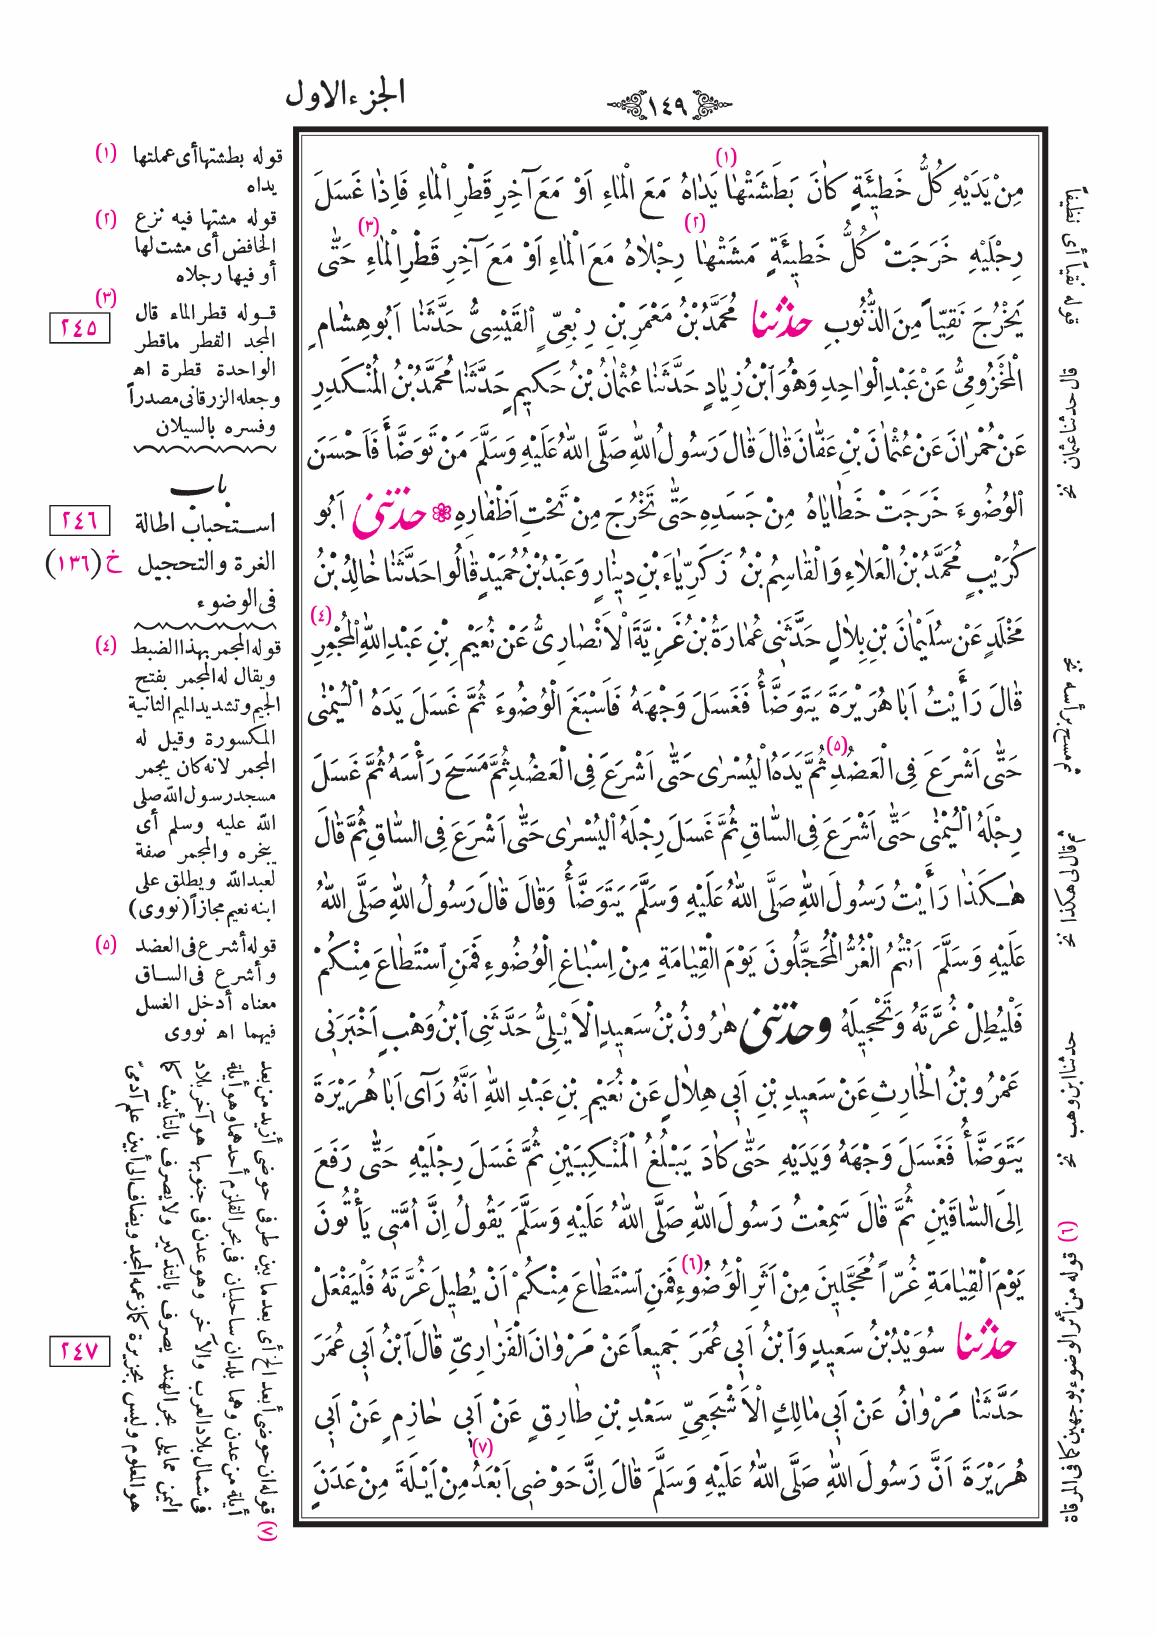 الجزء الاول
١٤٩
مِنْ يَدَيْهِ كُلُّ خَطِيئَةٍ كَانَ بَطَشَتْهَا (١) يَدَاهُ مَعَ الْمَاءِ اَوْ مَعَ آخِرِ قَطْرِ الْمَاءِ فَاِذَا غَسَلَ
رِجْلَيْهِ خَرَجَتْ كُلُّ خَطِيئَةٍ مَشَتْهَا (٢) رِجْلَاهُ مَعَ الْمَاءِ اَوْ مَعَ آخِرِ قَطْرِ الْمَاءِ (٣) حَتّٰى
يَخْرُجَ نَقِيّاً مِنَ الذُّنُوبِ حدثنا مُحَمَّدُ بْنُ مَعْمَرِ بْنِ رِبْعِىٍّ الْقَيْسِىُّ حَدَّثَنَا اَبُو هِشَامٍ
الْمَخْزُومِىُّ عَنْ عَبْدِ الْوَاحِدِ وَهُوَ ابْنُ زِيَادٍ حَدَّثَنَا عُثْمَانُ بْنُ حَكِيمٍ حَدَّثَنَا مُحَمَّدُ بْنُ الْمُنْكَدِرِ
عَنْ حُمْرَانَ عَنْ عُثْمَانَ بْنِ عَفَّانَ قَالَ قَالَ رَسُولُ اللهِ صَلَّى اللهُ عَلَيْهِ وَسَلَّمَ مَنْ تَوَضَّأَ فَاَحْسَنَ
الْوُضُوءَ خَرَجَتْ خَطَايَاهُ مِنْ جَسَدِهِ حَتّٰى تَخْرُجَ مِنْ تَحْتِ اَظْفَارِهِ ❁ حدثنى اَبُو
كُرَيْبٍ مُحَمَّدُ بْنُ الْعَلَاءِ وَالْقَاسِمُ بْنُ زَكَرِيَّاءَ بْنِ دِينَارٍ وَعَبْدُ بْنُ حُمَيْدٍ قَالُوا حَدَّثَنَا خَالِدُ بْنُ
مَخْلَدٍ عَنْ سُلَيْمَانَ بْنِ بِلَالٍ حَدَّثَنِى عُمَارَةُ بْنُ غَزِيَّةَ الْاَنْصَارِىُّ عَنْ نُعَيْمِ بْنِ عَبْدِ اللهِ الْمُجْمِرِ (٤)
قَالَ رَأَيْتُ اَبَا هُرَيْرَةَ يَتَوَضَّأُ فَغَسَلَ وَجْهَهُ فَاَسْبَغَ الْوُضُوءَ ثُمَّ غَسَلَ يَدَهُ الْيُمْنٰى
حَتّٰى اَشْرَعَ فِى الْعَضُدِ (٥) ثُمَّ يَدَهُ الْيُسْرٰى حَتّٰى اَشْرَعَ فِى الْعَضُدِ ثُمَّ مَسَحَ رَأْسَهُ ثُمَّ غَسَلَ
رِجْلَهُ الْيُمْنٰى حَتّٰى اَشْرَعَ فِى السَّاقِ ثُمَّ غَسَلَ رِجْلَهُ الْيُسْرٰى حَتّٰى اَشْرَعَ فِى السَّاقِ ثُمَّ قَالَ
هٰكَذَا رَأَيْتُ رَسُولَ اللهِ صَلَّى اللهُ عَلَيْهِ وَسَلَّمَ يَتَوَضَّأُ وَقَالَ قَالَ رَسُولُ اللهِ صَلَّى اللهُ
عَلَيْهِ وَسَلَّمَ اَنْتُمُ الْغُرُّ الْمُحَجَّلُونَ يَوْمَ الْقِيَامَةِ مِنْ اِسْبَاغِ الْوُضُوءِ فَمَنِ اسْتَطَاعَ مِنْكُمْ
فَلْيُطِلْ غُرَّتَهُ وَتَحْجِيلَهُ وحدثنى هٰرُونُ بْنُ سَعِيدٍ الْاَيْلِىُّ حَدَّثَنِى ابْنُ وَهْبٍ اَخْبَرَنِى
عَمْرُو بْنُ الْحَارِثِ عَنْ سَعِيدِ بْنِ اَبِى هِلَالٍ عَنْ نُعَيْمِ بْنِ عَبْدِ اللهِ اَنَّهُ رَآى اَبَا هُرَيْرَةَ
يَتَوَضَّأُ فَغَسَلَ وَجْهَهُ وَيَدَيْهِ حَتّٰى كَادَ يَبْلُغُ الْمَنْكِبَيْنِ ثُمَّ غَسَلَ رِجْلَيْهِ حَتّٰى رَفَعَ
اِلَى السَّاقَيْنِ ثُمَّ قَالَ سَمِعْتُ رَسُولَ اللهِ صَلَّى اللهُ عَلَيْهِ وَسَلَّمَ يَقُولُ اِنَّ اُمَّتِى يَأْتُونَ
يَوْمَ الْقِيَامَةِ غُرّاً مُحَجَّلِينَ مِنْ اَثَرِ الْوُضُوءِ (٦) فَمَنِ اسْتَطَاعَ مِنْكُمْ اَنْ يُطِيلَ غُرَّتَهُ فَلْيَفْعَلْ
حدثنا سُوَيْدُ بْنُ سَعِيدٍ وَابْنُ اَبِى عُمَرَ جَمِيعاً عَنْ مَرْوَانَ الْفَزَارِىِّ قَالَ ابْنُ اَبِى عُمَرَ
حَدَّثَنَا مَرْوَانُ عَنْ اَبِى مَالِكٍ الْاَشْجَعِىِّ سَعْدِ بْنِ طَارِقٍ عَنْ اَبِى حَازِمٍ عَنْ اَبِى
هُرَيْرَةَ اَنَّ رَسُولَ اللهِ صَلَّى اللهُ عَلَيْهِ وَسَلَّمَ قَالَ اِنَّ حَوْضِى اَبْعَدُ (٧) مِنْ اَيْلَةَ مِنْ عَدَنٍ
(١) قوله بطشتها أى عملتها
يداه
(٢) قوله مشتها فيه نزع
الخافض أى مشت لها
أو فيها رجلاه
(٣) قوله قطر الماء قال
٢٤٥
المجد القطر ماقطر
الواحدة قطرة اه
وجعله الزرقانى مصدراً
وفسره بالسيلان
باب
٢٤٦
استحباب اطالة
الغرة والتحجيل خ (١٣٦)
فى الوضوء
(٤) قوله المجمر بهذا الضبط
ويقال له المجمر بفتح
الجيم وتشديد الميم الثانية
المكسورة وقيل له
المجمر لانه كان يجمر
مسجد رسول الله صلى
الله عليه وسلم أى
يبخره والمجمر صفة
لعبد الله ويطلق على
ابنه نعيم مجازاً (نووى)
(٥) قوله أشرع فى العضد
وأشرع فى الساق
معناه أدخل الغسل
فيهما اه نووى
٢٤٧
(٧) قوله ان حوضى أبعد الخ أى بعد ما بين طرفى حوضى أزيد من بعد
أيلة من عدن وهما بلدان ساحليان فى بحر القلزم أحدهما وهو أيلة
فى شمال بلاد العرب والآخر وهو عدن فى جنوبها هو آخر بلاد
اليمن مما يلى بحر الهند يصرف بالتذكير ولا يصرف بالتأنيث كما
هو المعلوم وليس بجزيرة كما زعمه المجد ويضاف الى أبين علم آدمى
قوله نقياً أى نظيفاً
قال حدثنا عثمان نخ
ثم مسح برأسه نخ
وقال لى هكذا نخ
حدثنا ابن وهب نخ
(٦) قوله من أثر الوضوء بوجهين كما فى المرقاة